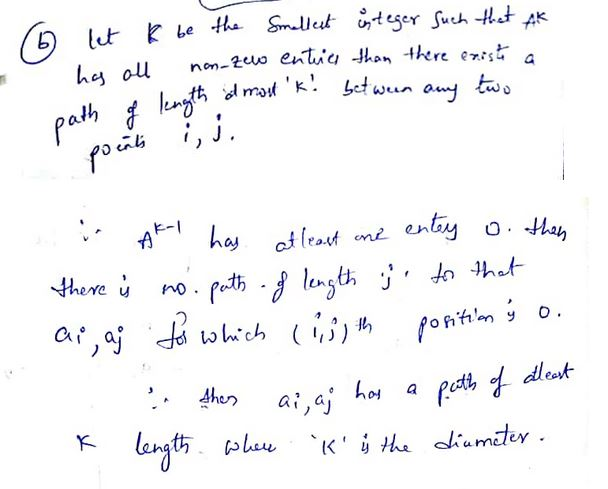 (b) let K be the Smallest integer such that AK
has all non-zero entries than there exist a
path of length atmost 'K'. between any two
points i, j.
∵ A^K-1 has atleast one entey 0. then
there is no. path of length 'j' for that
ai, aj for which (i,j)th position is 0.
∴ then ai, aj has a path of atleast
K length. where 'K' is the diameter.